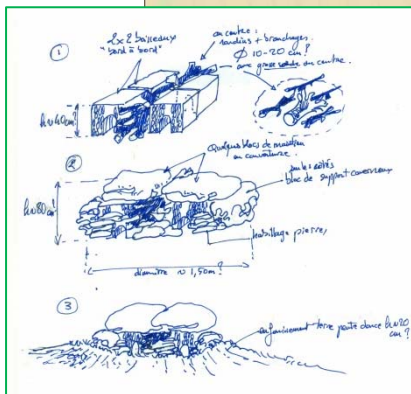 1
2x2 boisseaux
"bord à bord"
au centre :
rondins + branchages.
Ø 10-20 cm ?
une grosse au centre
h ≈ 40 cm
2
Quelques blocs de
en couverture.
sur les côtés
bloc de support caverneux
h ≈ 80 cm
habillage pierres
diamètre ≈ 1,50m ?
3
enfouissement terre pente douce h ≈ 20
cm ?